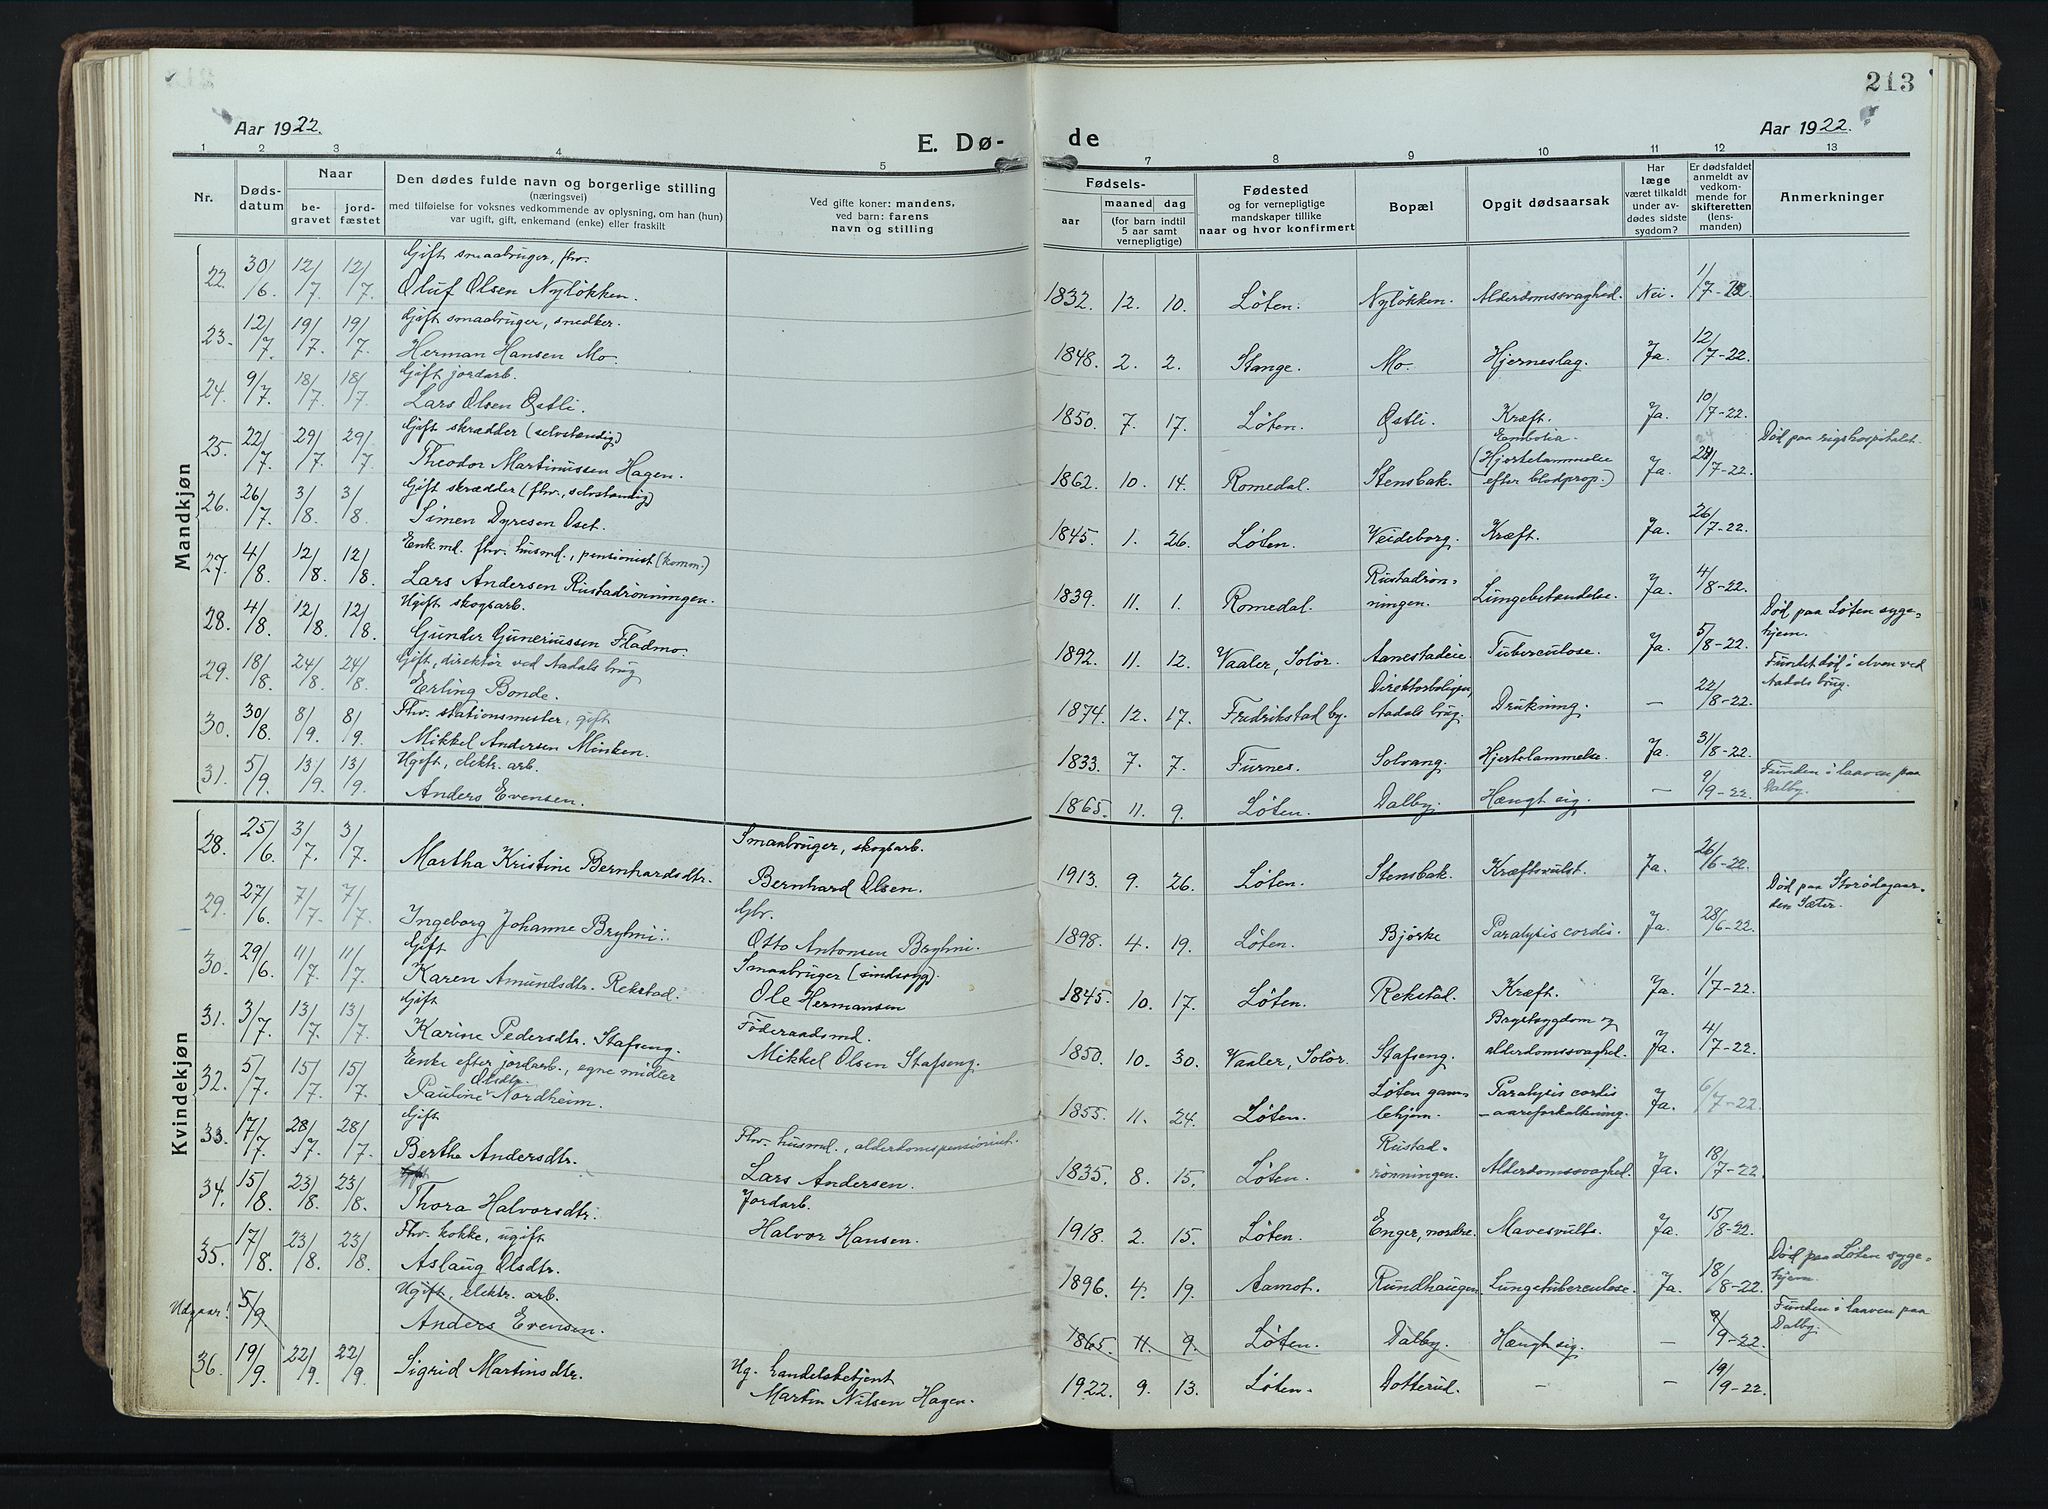 213
Aar 1922.
E. Dø-
de
Aar 1922.
1 2 3 4 5 7 8 9 10 11 12 13
Nr.
Døds-
datum
Naar
be-
gravet
jord-
fæstet
Den dødes fulde navn og borgerlige stilling
(næringsvei)
med tilføielse for voksnes vedkommende av oplysning, om han (hun)
var ugift, gift, enkemand (enke) eller fraskilt
Ved gifte koner: mandens,
ved barn: farens
navn og stilling
Fødsels-
aar
maaned
dag
(for barn indtil
5 aar samt
vernepligtige)
Fødested
og for vernepligtige
mandskaper tillike
naar og hvor konfirmert
Bopæl
Opgit dødsaarsak
Har
læge
været tilkaldt
under av-
dødes sidste
sygdom?
Er dødsfaldet
anmeldt av
vedkom-
mende for
skifteretten
(lens-
manden)
Anmerkninger
Mandkjøn
22. 30/6 12/7 12/7 Gift smaabruger, fhv.
Oluf Olsen Nyløkken. 1832. 12. 10. Løten. Nyløkken. Alderdomssvaghed. Nei. 1/7-22.
23. 12/7 19/7 19/7 Gift smaabruger, snedker.
Herman Hansen Mo. 1848. 2. 2. Stange. Mo. Hjerneslag. Ja. 12/7-22.
24. 9/7 18/7 18/7 Gift jordarb.
Lars Olsen Østli. 1850. 7. 17. Løten. Østli. Kræft. Ja. 10/7-22.
25. 22/7 29/7 29/7 Gift skrædder (selvstændig)
Theodor Martinussen Hagen. 1862. 10. 14. Romedal. Stensbak. Embolia.
(Hjertelammelse
efter blodprop.) Ja. 24/7-22. Død paa rigshospitalet.
26. 26/7 3/8 3/8 Gift skrædder (fhv. selvstændig)
Simen Dyresen Oset. 1845. 1. 26. Løten. Veideborg. Kræft. Ja. 26/7-22.
27. 4/8 12/8 12/8 Enk.md. fhv. husmd., pensionist (komm.)
Lars Andersen Rustadrønningen. 1839. 11. 1. Romedal. Rustadrøn-
ningen. Lungebetændelse. Ja. 4/8-22.
28. 4/8 12/8 12/8 Ugift skogsarb.
Gunder Guneriussen Fladmo. 1892. 11. 12. Vaaler, Solør. Aanestadeie. Tuberculose. Ja. 5/8-22. Død paa Løten syge-
hjem.
29. 18/8 24/8 24/8 Gift, direktør ved Aadals brug
Erling Bonde. 1874. 12. 17. Fredrikstad by. Direktørboligen,
Aadals brug. Drukning. — 22/8-22. Fundet død i elven ved
Aadals brug.
30. 30/8 8/9 8/9 Fhv. stationsmester, gift
Mikkel Andersen Minken. 1833. 7. 7. Furnes. Solvang. Hjertelammelse. Ja. 31/8-22.
31. 5/9 13/9 13/9 Ugift, elektr. arb.
Anders Evensen. 1865. 11. 9. Løten. Dalby. Hængt sig. — 9/9-22. Funden i laaven paa
Dalby.
Kvindekjøn
28. 25/6 3/7 3/7 Martha Kristine Bernhardsdtr. Smaabruger, skogsarb.
Bernhard Olsen. 1913. 9. 26. Løten. Stensbak. Kræftsvulst. Ja. 26/6-22.
29. 27/6 7/7 7/7 Ingeborg Johanne Bryhni. Gbr.
Otto Antonsen Bryhni. 1898. 4. 19. Løten. Bjørke Paralysis cordis. Ja. 28/6-22. Død paa Storødegaar-
den Sæter.
30. 29/6 11/7 11/7 Gift
Karen Amundsdtr. Rekstad. Smaabruger (sindssyg).
Ole Hermansen 1845. 10. 17. Løten. Rekstad. Kræft. Ja. 1/7-22.
31. 3/7 13/7 13/7 Gift
Karine Pedersdtr. Stafseng. Føderaadsmd.
Mikkel Olsen Stafseng. 1850. 10. 30. Vaaler, Solør. Stafseng. Brystsygdom og
alderdomssvaghed. Ja. 4/7-22.
32. 5/7 15/7 15/7 Enke efter jordarb., egne midler
Olsdtr.
Pauline Nordheim. 1855. 11. 24. Løten. Løten gam-
lehjem. Paralysis cordis
-aareforkalkning. Ja. 6/7-22.
33. 17/7 28/7 28/7 Gift
Bertha Andersdtr. Fhv. husmd., alderdomspensionist.
Lars Andersen. 1835. 8. 15. Løten. Rustad-
rønningen. Alderdomssvaghed. Ja. 18/7-22.
34. 15/8. 23/8. 23/8. Gift
Thora Halvorsdtr. Jordarb.
Halvor Hansen. 1918. 2. 15. Løten. Enger, nordre. Mavesvulst. Ja. 15/8-22.
35. 17/8. 23/8. 23/8. Fhv. kokke, ugift
Aslaug Olsdtr. 1896. 4. 19. Aamot. Rundhaugen Lungetuberculose. Ja. 18/8-22. Død paa Løten syge-
hjem.
Udgaar! 5/9 Ugift, elektr. arb.
Anders Evensen. 1865. 11. 9. Løten. Dalby. Hængt sig. — 9/9-22. Funden i laaven paa
Dalby.
36. 19/9. 22/9. 22/9. Sigrid Martinsdtr. Ug. handelsbetjent
Martin Nilsen Hagen. 1922. 9. 13. Løten. Dotterud. — — 19/9-22.